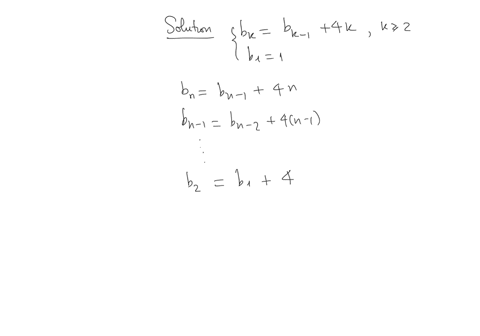 Solution { bₖ = bₖ₋₁ + 4k , k ≥ 2
b₁ = 1
bₙ = bₙ₋₁ + 4n
bₙ₋₁ = bₙ₋₂ + 4(n-1)
⋮
b₂ = b₁ + 4